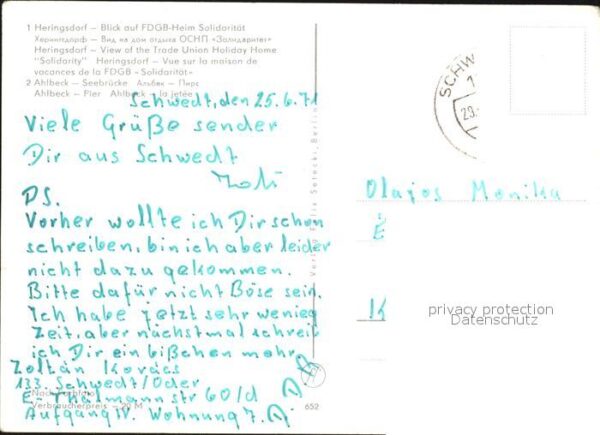 1 Heringsdorf – Blick auf FDGB-Heim Solidarität
Херингсдорф – Вид на дом отдыха ОСНП «Золидаритет»
Heringsdorf – View of the Trade Union Holiday Home
"Solidarity" Heringsdorf – Vue sur la maison de
vacances de la FDGB «Solidarität»
2 Ahlbeck – Seebrücke Альбек – Пирс
Ahlbeck – Pier Ahlbeck – la jetée
Schwedt, den 25.6.71
Viele Grüße sender
Dir aus Schwedt
Zoli
PS.
Vorher wollte ich Dir schon
schreiben, bin ich aber leider
nicht dazu gekommen.
Bitte dafür nicht Böse sein.
Ich habe jetzt sehr wenieg
Zeit, aber nächstmal schreib
ich Dir ein bißchen mehr
Zoltán Kovács
133. Schwedt/Oder
E-Thälmann str 60/d
Aufgang IV. Wohnung 7.
Verbraucherpreis – 20 M
652
Verlag Felix Setecki, Berlin
SCHW
Olajos Monika
É
K
privacy protection
Datenschutz